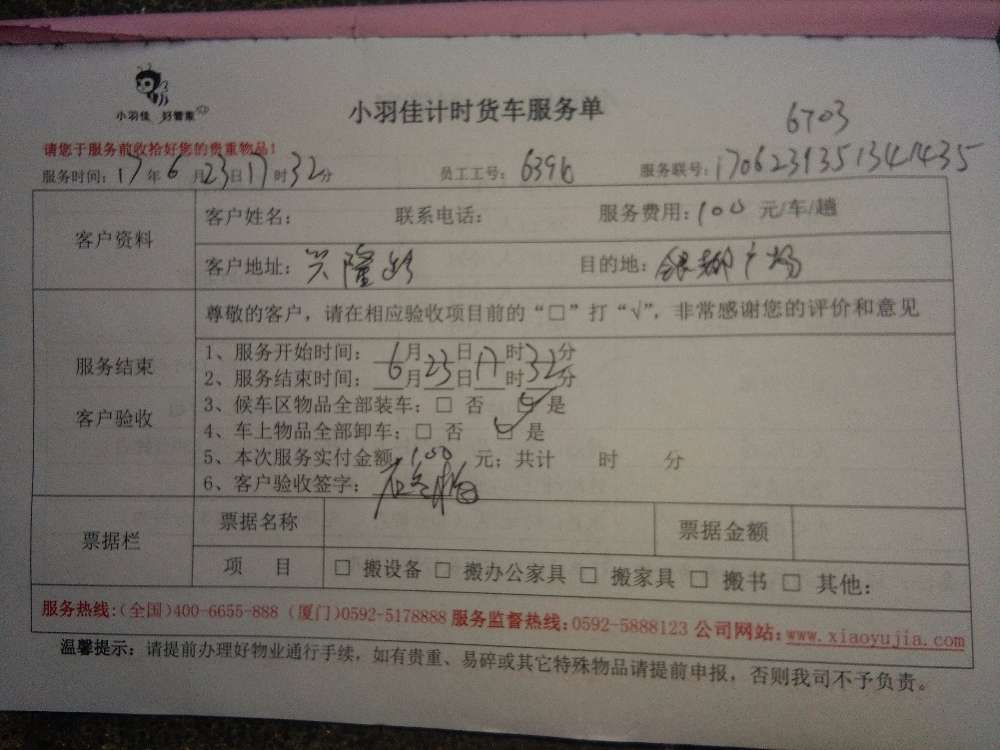 小羽佳 好管家
小羽佳计时货车服务单
6703
请您于服务前收拾好您的贵重物品！
服务时间：17年6月23日17时32分 员工工号：6396 服务联号：
客户资料
客户姓名： 联系电话： 服务费用：100 元/车/趟
客户地址：兴隆 目的地：银都广场
服务结束
客户验收
尊敬的客户，请在相应验收项目前的“□”打“√”，非常感谢您的评价和意见
1、服务开始时间：6月23日17时32分
2、服务结束时间：__月__日__时__分
3、候车区物品全部装车：□ 否 ☑ 是
4、车上物品全部卸车：□ 否 ☑ 是
5、本次服务实付金额 100 元；共计 时 分
6、客户验收签字：
票据栏
票据名称 票据金额
项 目 □ 搬设备 □ 搬办公家具 □ 搬家具 □ 搬书 □ 其他：
服务热线：（全国）400-6655-888（厦门）0592-5178888 服务监督热线：0592-5888123 公司网站：www.xiaoyujia.com
温馨提示：请提前办理好物业通行手续，如有贵重、易碎或其它特殊物品请提前申报，否则我司不予负责。